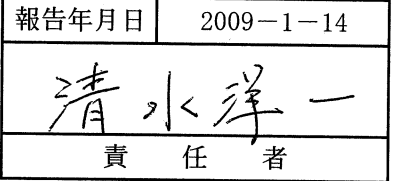 報告年月日 2009-1-14
清水洋一
責任者